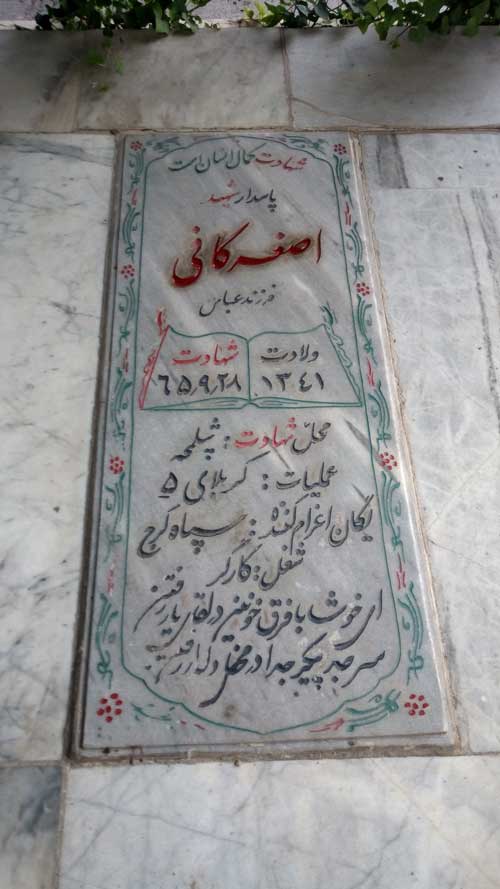 شهادت کمال انسان است
پاسدار شهید
اصغر کافی
فرزند عباس
ولادت شهادت
۱۳٤۱ ٦۵٫۹٫۲۸
محل شهادت: شلمچه
عملیات: کربلای ۵
یگان اعزام کننده: سپاه کرج
شغل: کارگر
ای خوشا با فرق خونین در لقای یار رفتن
سر جدا پیکر جدا در محفل دلدار رفتن